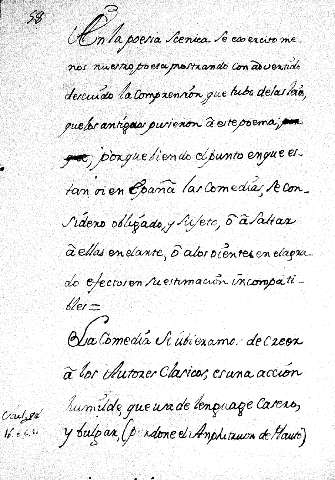 58
En la poesia Scenica Se exercito me
nos nuestro poeta, mostrando con advertido
descuido la Comprensión que tubo de las leies,
que los antiguos pusieron à este poema;
porque biendo el punto en que es-
tan oi en España las Comedias, Se con-
sidero obligado, y Sujeto, ô â faltar
â ellas en el arte, ô a los oientes en el agra-
do efectos en su estimación incompati-
bles =
La Comedia Si ubieramos de Creer
â los Autores Clasicos, es una acción
humilde, que usa de lenguage Casero,
y bulgar, (perdone el Amphitruon de Plauto)